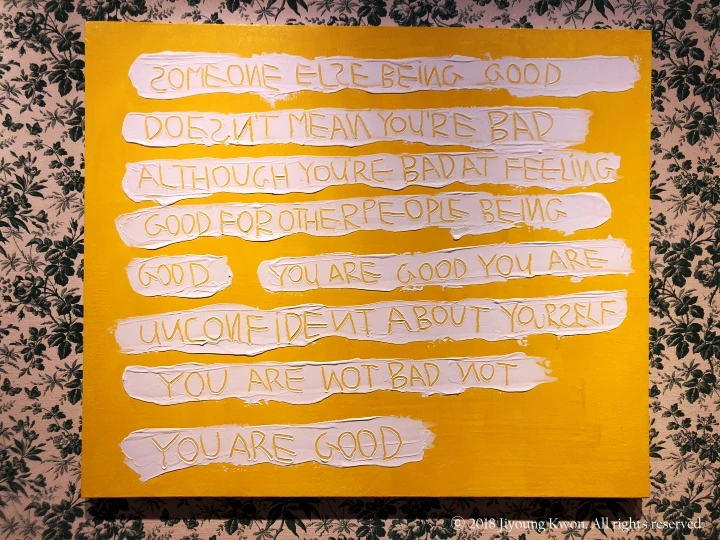 SOMEONE ELSE BEING GOOD
DOESN'T MEAN YOU'RE BAD
ALTHOUGH YOU'RE BAD AT FEELING
GOOD FOR OTHER PEOPLE BEING
GOOD YOU ARE GOOD YOU ARE
UNCONFIDENT ABOUT YOURSELF
YOU ARE NOT BAD NOT
YOU ARE GOOD
© 2018 Jiyoung Kwon. All rights reserved.